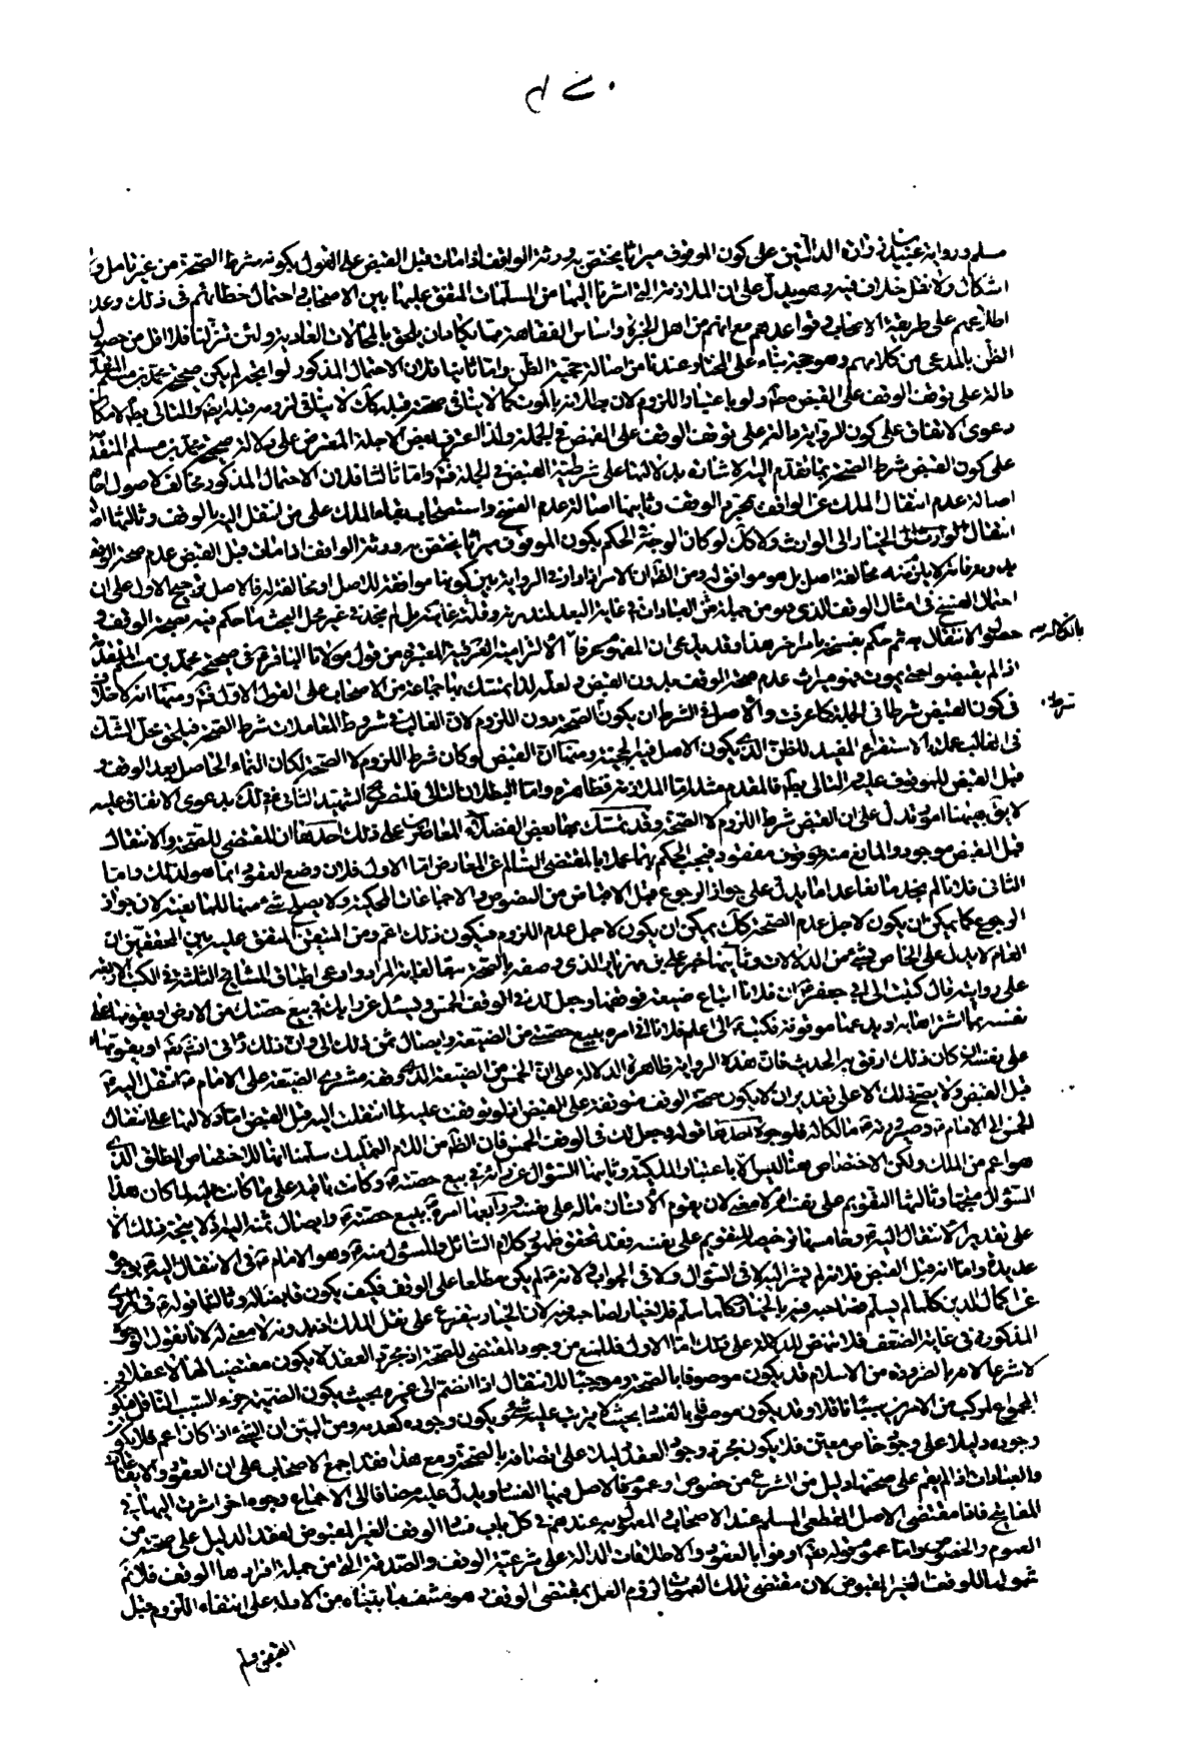 مسلم ورواية عبيد بن زرارة الدالتين على كون الموقوف ميراثا يختص به ورثة الواقف اذا مات قبل القبض على القول بكونه شرط الصحة من غير تامل و
اشكال ولا نقل خلاف فيه وهو يدل على ان الملازمة التي اشرنا اليها من المسلمات المتفق عليها بين الاصحاب واحتمال خطائهم في ذلك وعدم
اطلاعهم على طريقة الاصحاب وقواعدهم مع انهم من اهل الخبرة واساس الفقاهة مما يكاد ان يلحق بالمحالات العادية ولئن تنزلنا فلا اقل من حصول
الظن بالمدعى من كلامهم وهو حجة بناء على المختار عندنا من اصالة حجية الظن واما ثانيا فلان الاحتمال المذكور لو انجه لم يكن صحيحة محمد بن مسلم المتقدمة
دالة على توقف الوقف على القبض مطلقا ولو باعتبار اللزوم لان بطلانه بالموت كما لا ينافي صحته قبله كذلك لا ينافي لزومه قبله ايضا والتالي بط لامكان
دعوى الاتفاق على كون الرواية دالة على توقف الوقف على القبض في الجملة ولذا اعترف بعض الاجلة المعترض على دلالة صحيحة محمد بن مسلم المتقدمة
على كون القبض شرط الصحة بما تقدم اليه الاشارة بدلالتها على شرطية القبض في الجملة فتم واما ثالثا فلان الاحتمال المذكور مخالف لاصول احدها
اصالة عدم انتقال الملك عن الواقف بمجرد الوقف وثانيها اصالة عدم الفسخ واستصحاب بقاء الملك على من انتقل اليه بالوقف وثالثها اصالة
انتقال الخيار الى الوارث ولا كذلك لو كان الوجه في الحكم بكون الموقوف ميراثا يختص به ورثة الواقف اذا مات قبل القبض عدم صحة الوقف
بدونه فانه لا يلزم منه مخالفة اصل بل هو موافق له ومن القران الامر اذا دار في الرواية بين كونها موافقة للاصل او مخالفة له فالاصل ترجيح الاول على ان
احتمال الفسخ في امثال الوقف الذي هو من جملة العبادات في غاية البعد لندرته وقلته غايته بل لم نجد في غير محل البحث ما حكم فيه بصحة الوقف و
حصول الانتقال به ثم حكم بفسخه بامر اخر هذا وقد يدعى ان المفهوم عرفا الالتزامية العرفية المعتبرة من قول مولانا الباقر في صحيحة محمد بن مسلم المتقدمة
بالدلالة
اذا لم يقبضوا حتى يموت فهو ميراث عدم صحة الوقف بدون القبض ولعله لذا تمسك بها جماعة من الاصحاب على القول الاول فتم ومنها انه لا خلاف
في كون القبض شرطا في الجملة كما عرفت والاصل في الشرط ان يكون الصحة دون اللزوم لان الغالب في شروط المعاملات شرط الصحة فيلحق محل الشك
شرط
في الغالب عملا بالاستقراء المفيد للظن الذي يكون الاصل فيه الحجية ومنها ان القبض لو كان شرط اللزوم لا الصحة لكان النماء الحاصل بعد الوقف و
قبل القبض للموقوف عليه والتالي بط فالمقدم مثله اما الملازمة فظاهرة واما بطلان التالي فلتصريح الشهيد الثاني في لك بدعوى الاتفاق عليه
لا يق هيهنا امور تدل على ان القبض شرط اللزوم لا الصحة وقد تمسك بها بعض الفضلاء المعاصرين على ذلك احدها ان المقتضى للصحة والانتقال
قبل القبض موجود والمانع منه مفقود فيجب الحكم بهما عملا بالمقتضى السالم عن المعارض اما الاول فلان وضع العقود انما هو لذلك واما
الثاني فلانا لم نجد مانعا عدا ما يدل على جواز الرجوع قبل الاقباض من النصوص والاجماعات المحكية ولا يصلح شيء منهما للمانعية لان جواز
الرجوع كما يمكن ان يكون لاجل عدم الصحة كذلك يمكن ان يكون لاجل عدم اللزوم فيكون ذلك اعم ومن المتيقن المتفق عليه بين المحققين ان
العام لا يدل على الخاص بشيء من الدلالات وثانيها خبر علي بن مهزيار الذي وصفه بالصحة وادعى اطباق المشايخ الثلثة في الكتب الاربعة
على روايته قال كتبت الى ابي جعفر ان فلانا ابتاع ضيعة فوقفها وجعل لك في الوقف الخمس ويسئل عن رايك في بيع حصتك من الارض او يقومها على
نفسه بما اشتراها به او يدعها موقوفة فكتب الى اعلم فلانا اني امره ببيع حصتي من الضيعة وايصال ثمن ذلك الى وان ذلك رائي انشاء الله او يقومها
على نفسه ان كان ذلك ارفق به الحديث فان هذه الرواية ظاهرة الدلالة على ان الخمس من الضيعة الذي وقفه مشتري الضيعة على الامام انتقل اليه
قبل القبض ولا يصح ذلك الا على تقدير ان لا يكون صحة الوقف متوقفة على القبض اذ لو توقفت عليه لما انتقلت اليه قبل القبض اما دلالتها على انتقال
الخمس الى الامام فلوجوه احدها قوله وجعل لك في الوقف الخمس فان الظاهر من اللام التمليك سلمنا انها للاختصاص المطلق الذي
هو اعم من الملك ولكن الاختصاص هنا ليس الا باعتبار الملكية وثانيها السؤال عن امره في بيع حصته وكانت باقية على ما كانت عليه لما كان هذا
السؤال متجها وثالثها التقويم على نفسه فلا معنى لان يقوم الانسان ماله على نفسه ورابعها امره ببيع حصته وايصال ثمنه اليه لا يتجه ذلك الا
على تقدير الانتقال اليه وخامسها ترخيصه للتقويم على نفسه فقد تحقق ظهور كلام السائل والمسؤل منه وهو الامام في الانتقال اليه بوجوه
عديدة واما انه قبل القبض فلانه لم يشر اليه لا في السؤال ولا في الجواب ولانه لم يكن مطلعا على الوقف فكيف يكون قابضا له وثالثها قوله في المروي
عن اكمال الدين كلما لم يسلم فصاحبه فيه بالخيار وكلما سلم فلا خيار لصاحبه فيه لان الخيار يتفرع على نقل الملك اذ بدونه لا معنى له لانا نقول الوجوه
المذكورة في غاية الضعف فلا تنهض للدلالة على ذلك اما الاول فللمنع من وجود المقتضى للصحة اذ مجرد العقد لا يكون مقتضيا لها لا عقلا و
لا شرعا لامر بالضرورة من الاسلام قد يكون موصوفا بالصحة وموجبا للانتقال اذا انضم الى غيره بحيث يكون الضميمة جزء السبب الناقل فيكون
المجموع المركب من الامرين سببا ناقلا وقد يكون موصوفا بالفساد بحيث لا يترتب عليه شيء ويكون وجوده كعدمه ومن البين ان الشيء اذا كان اعم فلا يكون
وجوده دليلا على وجود خاص معين فلا يكون مجرد وجود العقد دليلا على اتصافه بالصحة ومع هذا فقد اجمع الاصحاب على ان العقود والايقاعات
والعبادات اذا لم يقم على صحتها دليل من الشرع من خصوص او عموم فالاصل فيها الفساد ويدل عليه مضافا الى الاجماع وجوه اخر اشرت اليها في
المفاتيح فاذا مقتضى الاصل القطعي المسلم عند الاصحاب والمعمول به عندهم في كل باب فساد الوقف الغير المقبوض لفقد الدليل على صحته من
العموم والخصوص واما عموم قوله تعالى اوفوا بالعقود والاطلاقات الدالة على شرعية الوقف والصدقة التي من جملة افرادها الوقف فلا نعم
شمولها للوقف الغير المقبوض لان مقتضى تلك العمومات لزوم العمل بمقتضى الوقف وهو منتف بما بيناه من الادلة على انتفاء اللزوم قبل
القبض